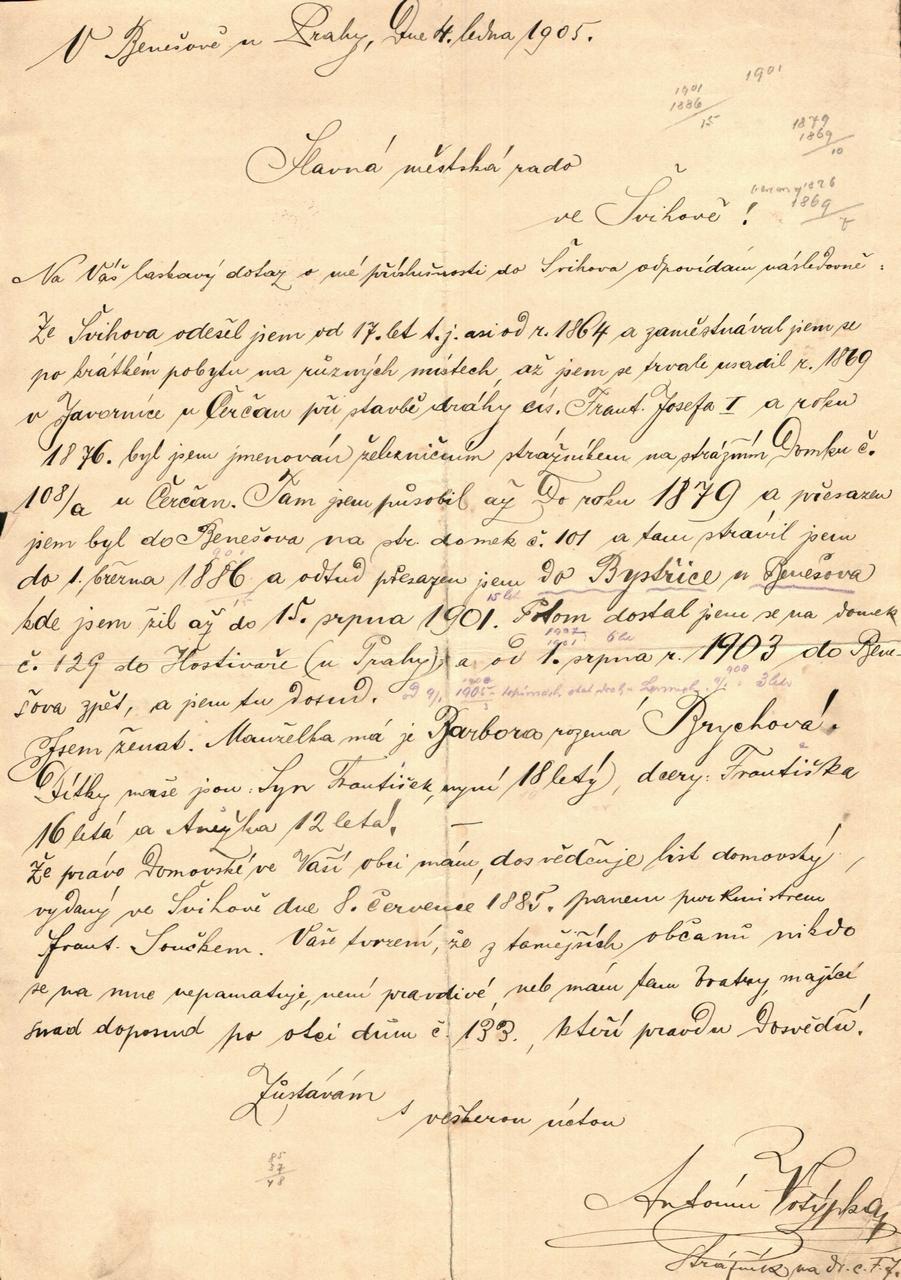 V Benešově u Prahy, Dne 4. ledna 1905.
1901
1901
1886
15
1879
1869
10
Slavná městská rado
1869
7
ve Švihově!
Na Váš laskavý dotaz o mé příslušnosti do Švihova odpovídám následovně:
Ze Švihova odešel jem od 17. let t.j. asi od r. 1864 a zaměstnával jem se
po krátkém pobytu na různých místech, až jsem se trvale usadil r. 1869
v Javornice u Čerčan při stavbě dráhy cís. Frant. Josefa I a roku
1876. byl jsem jmenován železničním strážníkem na strážním Domku č.
108/a u Čerčan. Tam jsem působil až Do roku 1879 a přesazen
jsem byl do Benešova na str. domek č. 101 a tam strávil jsem
do 1. března 1886 a odtud přesazen jsem do Bystřice u Benešova
15 let
kde jsem žil až do 15. srpna 1901. Potom dostal jsem se na domek
č. 129 do Hostivaře (u Prahy) a od 1. srpna r. 1903 do Bene-
šova zpět, a jsem tu dosud.
1905
908
3 let
Jsem ženat. Manželka má je Barbora rozená Brychová.
Dítky naše jsou: Syn František, nyní 18 letý), dcery: Františka
16 letá a Anežka 12 letá. —
Že právo Domovské ve Vaší obci mám, dosvědčuje list domovský,
vydaný ve Švihově dne 8. července 1885. panem purkmistrem
Frant. Součkem. Vaše tvrzení, že z tamějších občanů nikdo
se na mne nepamatuje, není pravdivé, neb mám tam bratry, mající
snad doposud po otci dům č. 133., kteří pravdu Dosvědčí.
Zůstávám
s veškerou úctou
85
37
48
Antonín Votýpka,
Strážník na dr. c. F. J.